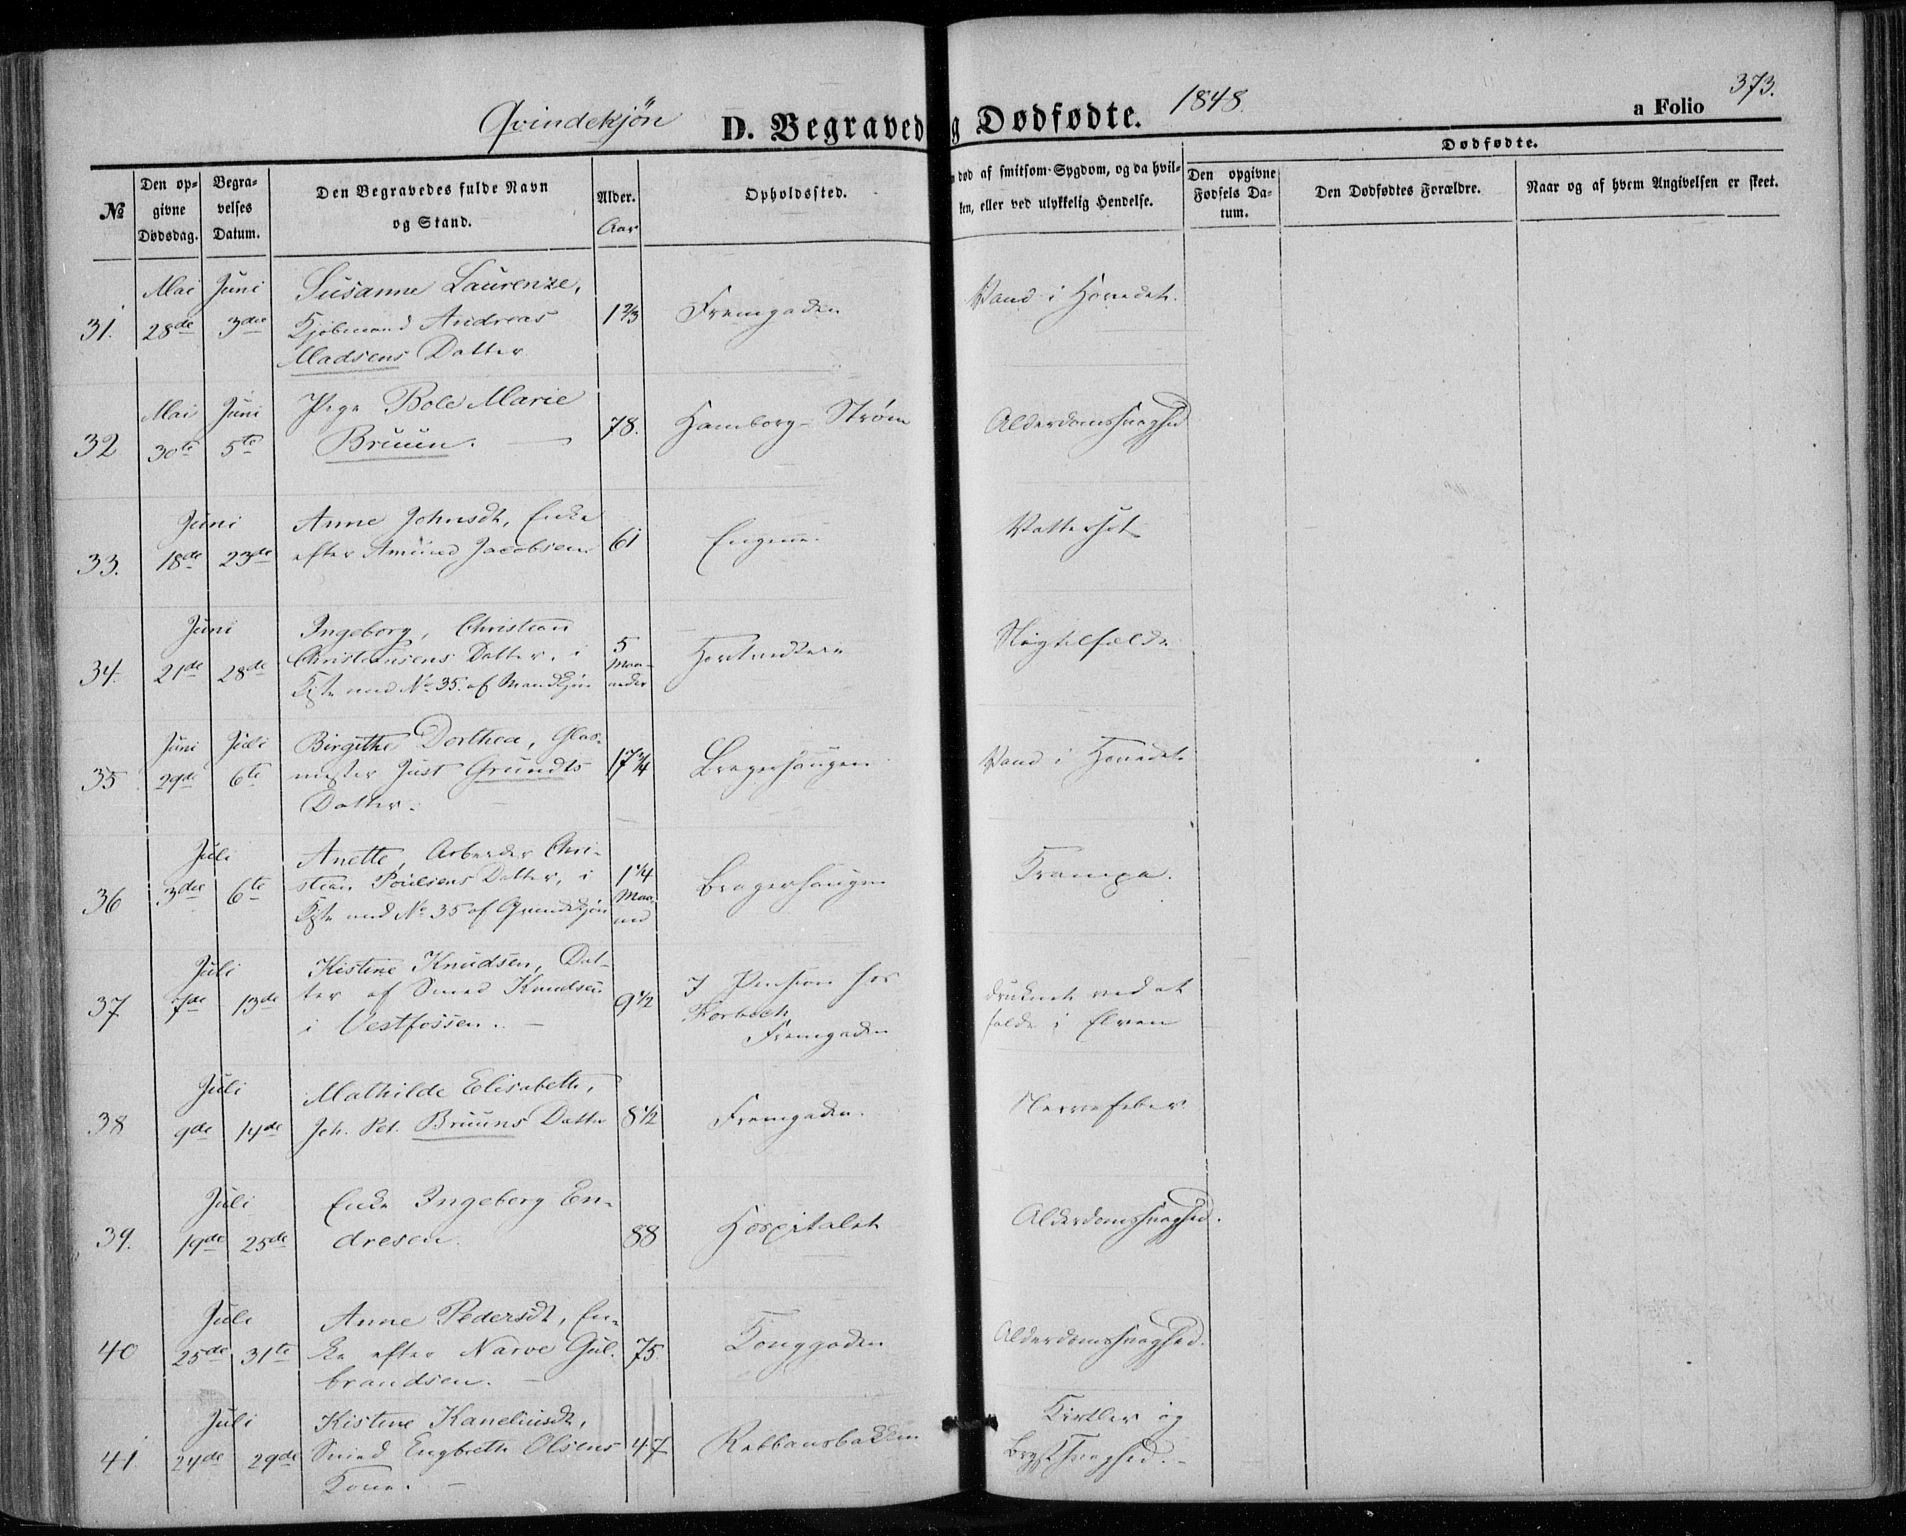 Qvindekjön D. Begraved g Dødfødte. 1848. a Folio 373.
№
Den op-
givne
Dødsdag.
Begra-
velses
Datum.
Den Begravedes fulde Navn
og Stand.
Alder.
Aar
Opholdssted.
død af smitsom Sygdom, og da hvil-
ken, eller ved ulykkelig Hendelse.
Dødfødte.
Den opgivne
Fødsels Da-
tum.
Den Dødfødtes Forældre.
Naar og af hvem Angivelsen er skeet.
31. Mai 28de Juni 3die
Susanne Laurenze,
Kjøbmand Andreas
Madsens Datter.
1 2/3
Fremgaden
Vand i Hovedet.
32 Mai 30te Juni 5te
Pige Bole Marie
Bruun.
78.
Hamborg-Strøm
Alderdomssvaghed
33. Juni 18de 23de
Anne Johnsdt, Enke
efter Amund Jacobsen
61
Engene.
Vattersot
34. Juni 21de 28de
Ingeborg, Christian
Christensens Datter, i
Kiste med No 35. af Mandkjön
5
Maa-
neder
Slagtilfælde
35 Juni 29de Juli 6te
Birgithe Dorthea, Glas-
mester Just Grundts
Datter.
17 3/4
Bragerhaugen
Vand i Hovedet.
36 Juli 3die 6te
Anette, Arbeider Chri-
stian Poulsens Datter, i
Kiste med No 35 af Qvindekjön
1 1/4
Maa-
ned
Bragerhaugen
Krampe.
37 Juli 7de 13de
Kistine Knudsen, Dat-
ter af Smed Knudsen
i Vestfossen.
9 1/2
I Pension hos
Forbech
Fremgaden
druknet ved at
falde i Elven
38 Juli 9de 14de
Mathilde Elisabeth,
Joh. Pet. Bruuns Datter
8 1/2
Fremgaden.
Nervefeber
39. Juli 19de 25de
Enke Ingeborg En-
dresen.
88
Hospitalet
Alderdomssvaghed.
40 Juli 25de 31te
Anne Pedersdt, En-
ke efter Narve Gul-
brandsen.
75.
Kongegaden
Alderdomssvaghed.
41 Juli 24de 29de
Kistine Kaneliusdt,
Smed Engbreth Olsens
Kone.
47
Rabbansbakken
Kirtler og
Brystsvaghed.